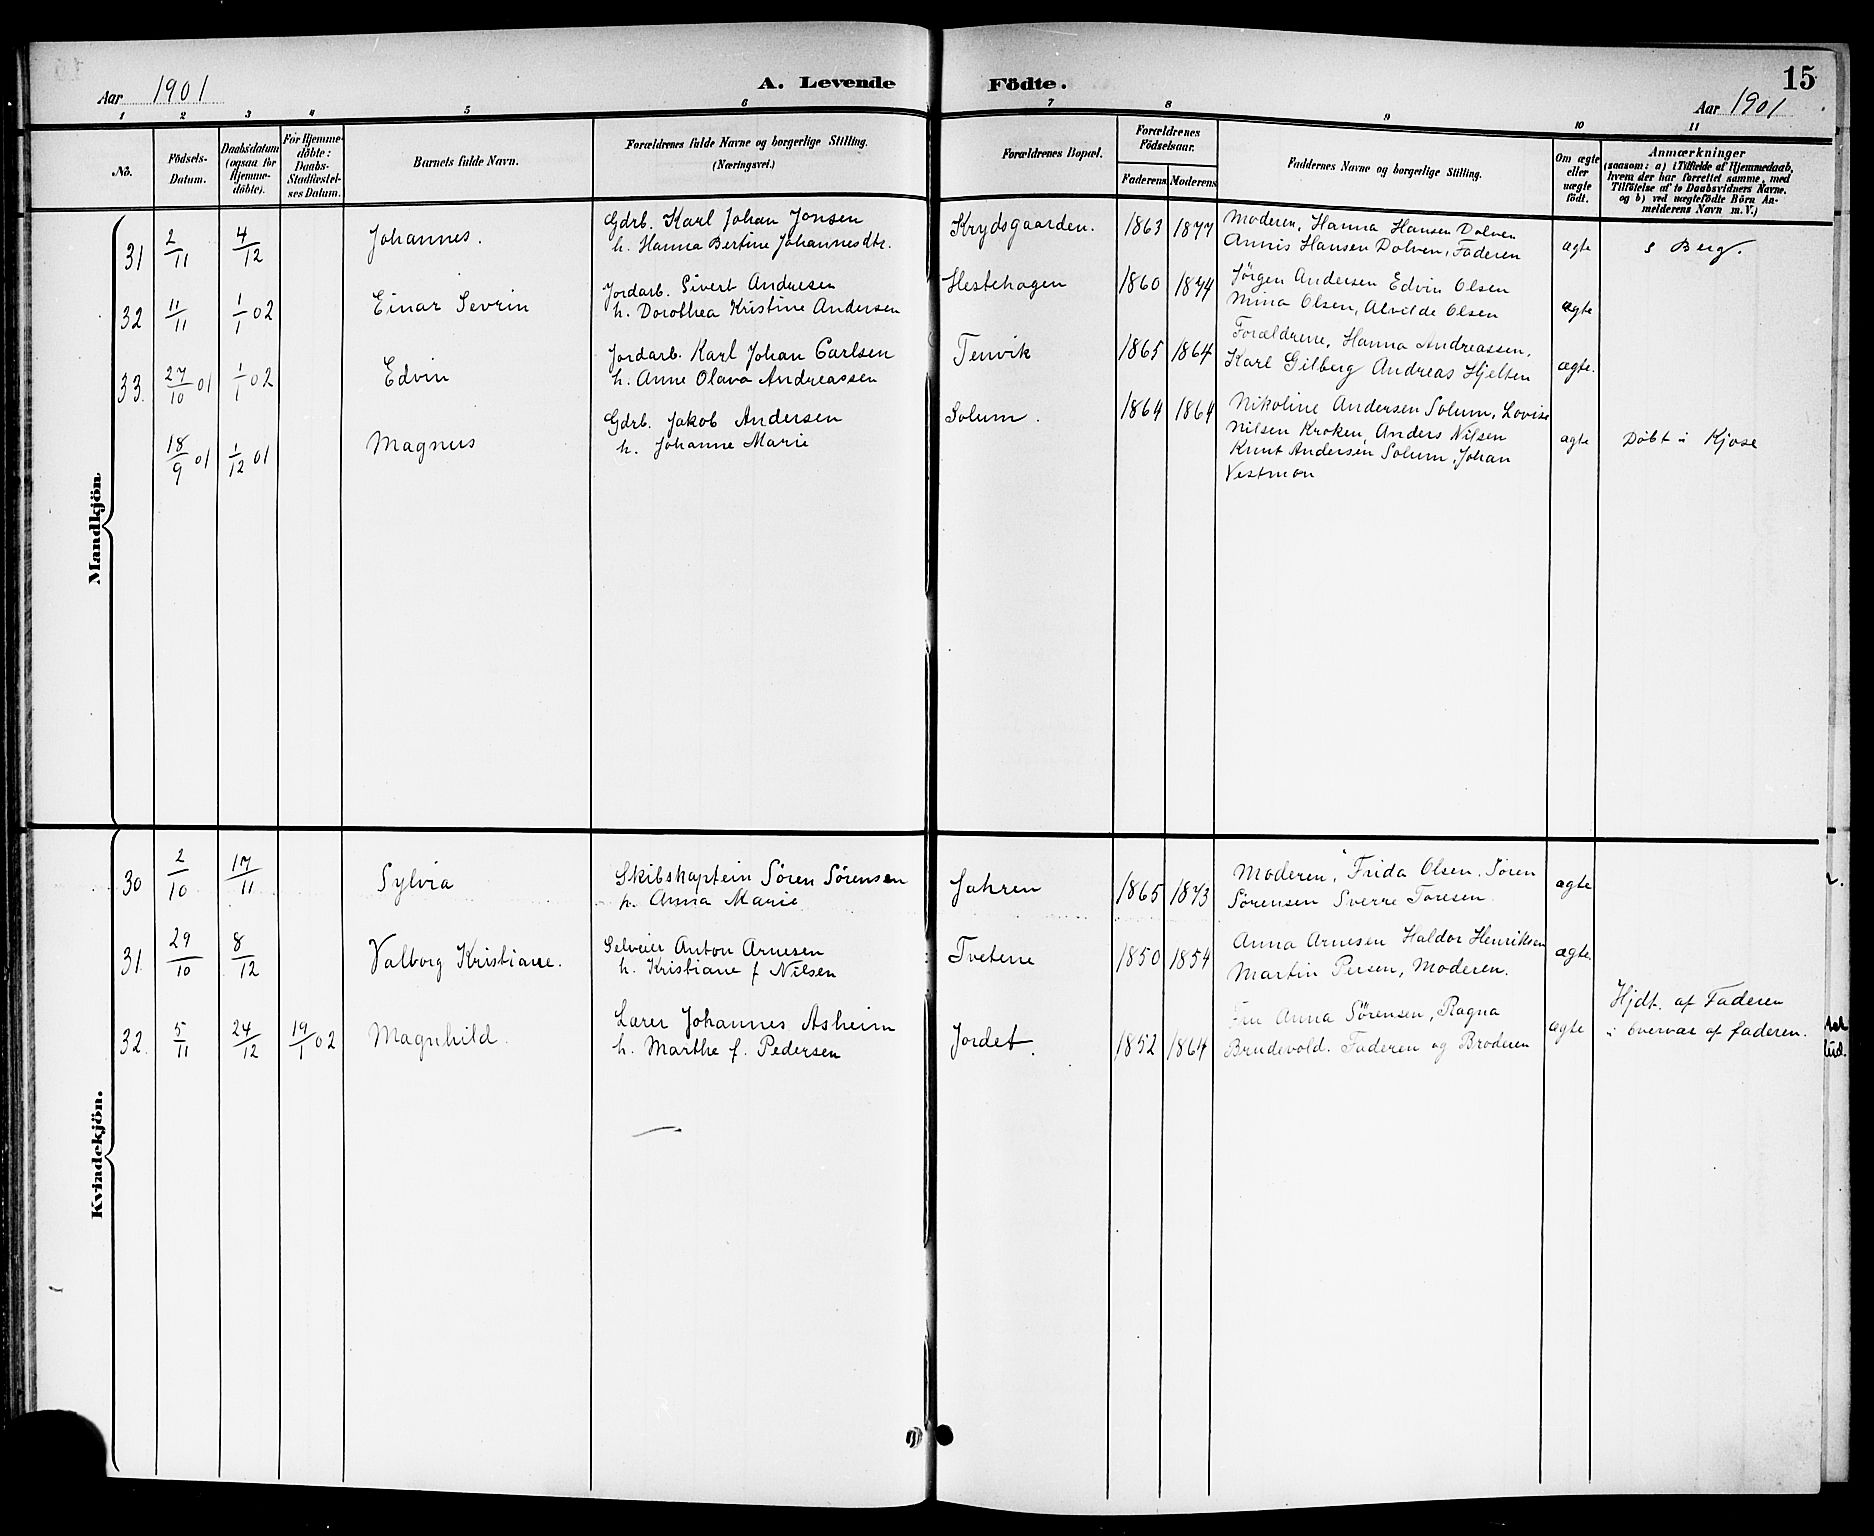 Aar 1901
A. Levende
Födte.
15
Aar 1901
1 2 3 4 5 6 7 8 9 10 11
No.
Födsels-
Datum.
Daabsdatum
(ogsaa for
Hjemme-
döbte).
For Hjemme-
döbte:
Daabs-
Stadfæstel-
ses Datum.
Barnets fulde Navn.
Forældrenes fulde Navne og borgerlige Stilling.
(Næringsvei.)
Forældrenes Bopæl.
Forældrenes
Födselsaar.
Faderens Moderens
Faddernes Navne og borgerlige Stilling.
Om ægte
eller
uægte
født.
Anmærkninger
(saasom: a) i Tilfælde af Hjemmedaab,
hvem der har forrettet samme, med
Tilföielse af to Daabsvidners Navne.
og b) ved uægtefödte Börn An-
melderens Navn m. V.)
Mandkjön.
31 2/11 4/12 Johannes.
Gdrb. Karl Johan Jonsen
h. Hanna Bertine Johannesdtr.
Krydsgaarden. 1863 1877
Moderen, Hanna Hansen Dolven
Annis Hansen Dolven, Faderen
ægte
s Berg.
32 11/11 1/1 02 Einar Sevrin
Jordarb. Sivert Andresen
h. Dorothea Kristine Andersen
Hestehagen 1860 1874
Jørgen Andersen Edvin Olsen
Mina Olsen, Alvilde Olsen
ægte
33. 27/10 01 1/1 02 Edvin
Jordarb. Karl Johan Carlsen
h. Anne Olava Andreassen
Tenvik 1865 1864
Forældrene, Hanna Andreassen,
Karl Gilberg Andreas Hjelten
ægte.
18/9 01 1/12 01 Magnus
Gdrb. Jakob Andersen
h. Johanne Marie
Solum. 1864 1864
Nikoline Andersen Solum, Lovise
Nilsen Kroken, Anders Nilsen
Knut Andersen Solum, Johan
Vestmon
ægte
Döbt i Kjose
Kvindekjön.
30 2/10 17/11 Sylvia
Skibskaptein Sören Sörensen
h. Anna Marie
Jahren 1865 1873
Moderen, Frida Olsen. Sören
Sörensen Sverre Toresen
ægte
31. 29/10 8/12 Valborg Kristiane.
Selveier Anton Arnesen
h. Kristiane f Nilsen
Tvetene 1850 1854
Anna Arnesen Haldor Henriksen
Martin Persen, Moderen.
ægte.
32. 5/11 24/12 19/1 02 Magnhild.
Lærer Johannes Asheim
h. Marthe f. Pedersen
Jordet. 1852 1864
Anna Sörensen, Ragna
Brudevold. Faderen og Broderen
ægte
Hjdt. af Faderen
i overvær af faderen.